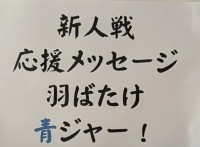 新人戦
応援メッセージ
羽ばたけ
青ジャー！